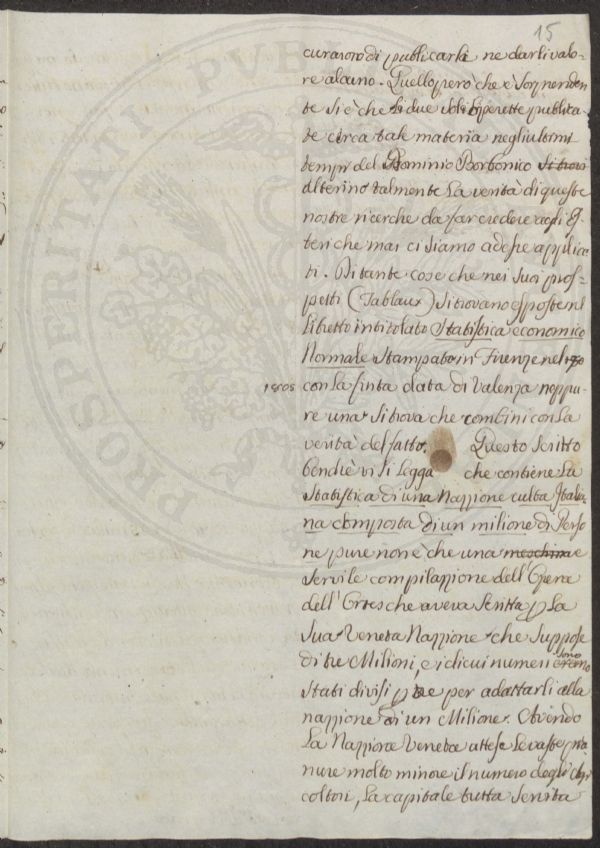 15
PROSPERITATI PVBL
curarono di publicarli ne darli valo-
re alcuno. Quello però che è sorprenden
te si è che di due soli operette publica-
te circa tale materia negli ultimi
tempi del Dominio Borbonico si trovi
alterino talmente la verità di queste
nostre ricerche da far credere agli Es-
teri che mai ci siamo ad esse applica-
ti. Di tante cose che nei suoi pros-
petti (Tablaux) si trovano esposte nel
libretto intitolato Statistica economico
Normale Stampato in Firenze nel
1808 con la finta data di Valenza neppu-
re una si trova che combini con la
verità del fatto. Questo scritto
bendiè vi si legga che contiene la
Statistica di una Nazzione culta Italia-
na composta di un milione di Perso
ne pure non è che una meschina e
servile compilazzione dell'Opera
dell'Ortes che aveva scritta p la
sua Veneta Nazzione che suppose
di tre Milioni, e i di cui numeri eremo sono
stati divisi p tre per adattarli alla
nazzione di un Milione. Avendo
la Nazzione Veneta attese le vaste pia
nure molto minore il numero degli Agri
coltori, la capitale tutta servita